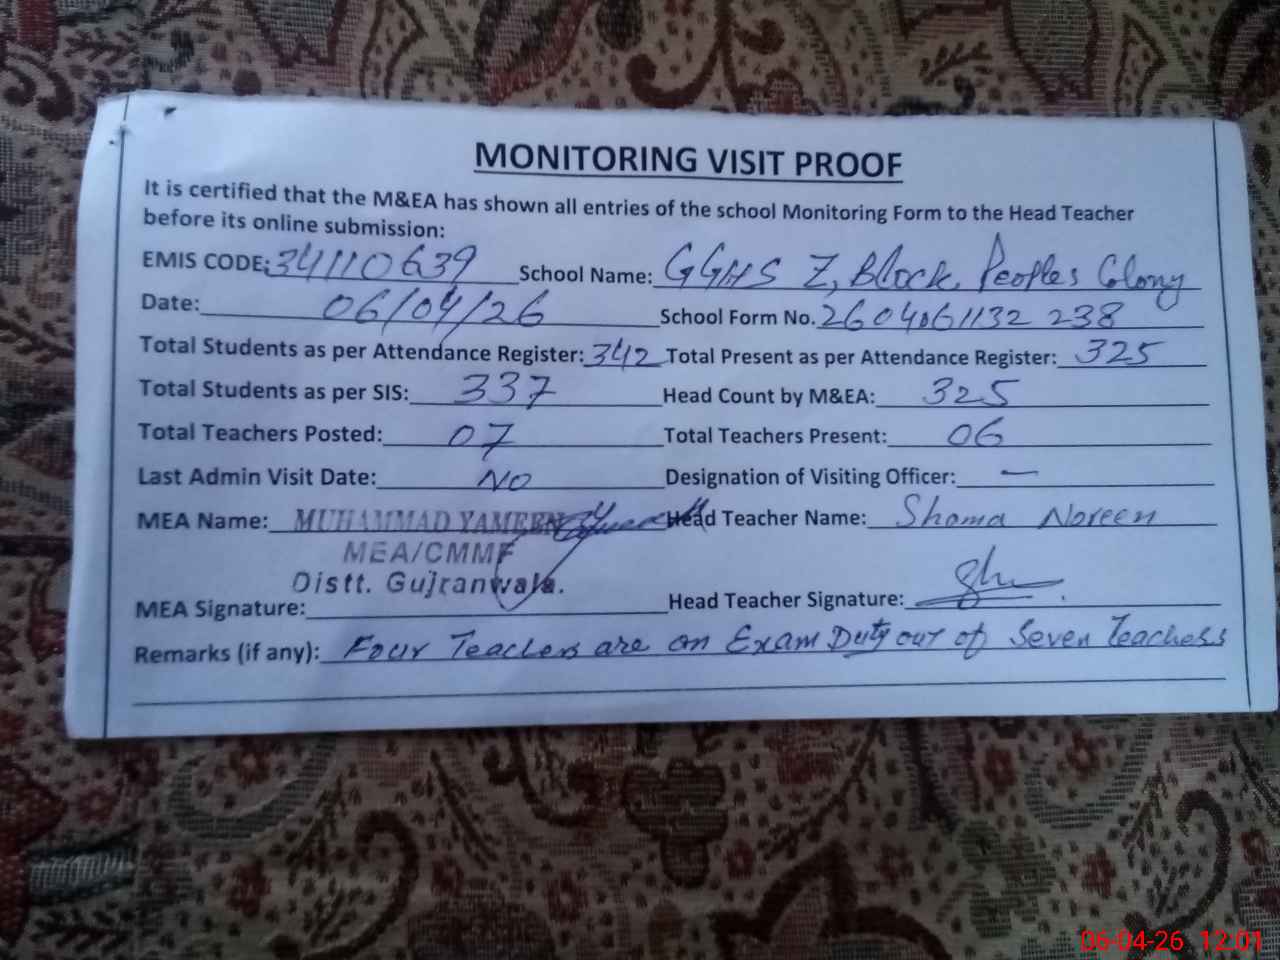 MONITORING VISIT PROOF
It is certified that the M&EA has shown all entries of the school Monitoring Form to the Head Teacher
before its online submission:
EMIS CODE: 34110639 School Name: GGHS Z, Block, Peoples Colony
Date: 06/04/26 School Form No. 2604061132 238
Total Students as per Attendance Register: 342 Total Present as per Attendance Register: 325
Total Students as per SIS: 337 Head Count by M&EA: 325
Total Teachers Posted: 07 Total Teachers Present: 06
Last Admin Visit Date: NO Designation of Visiting Officer: —
MEA Name: MUHAMMAD YAMEEN Head Teacher Name: Shama Noreen
MEA/CMMF
Distt. Gujranwala.
MEA Signature: Head Teacher Signature:
Remarks (if any): Four Teachers are on Exam Duty out of Seven Teachers
06-04-26 12:01